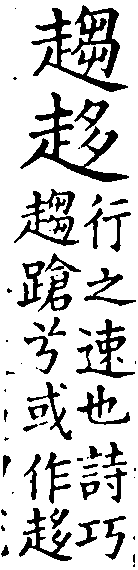 趨趍
行之速也詩巧
趨蹌兮或作趍